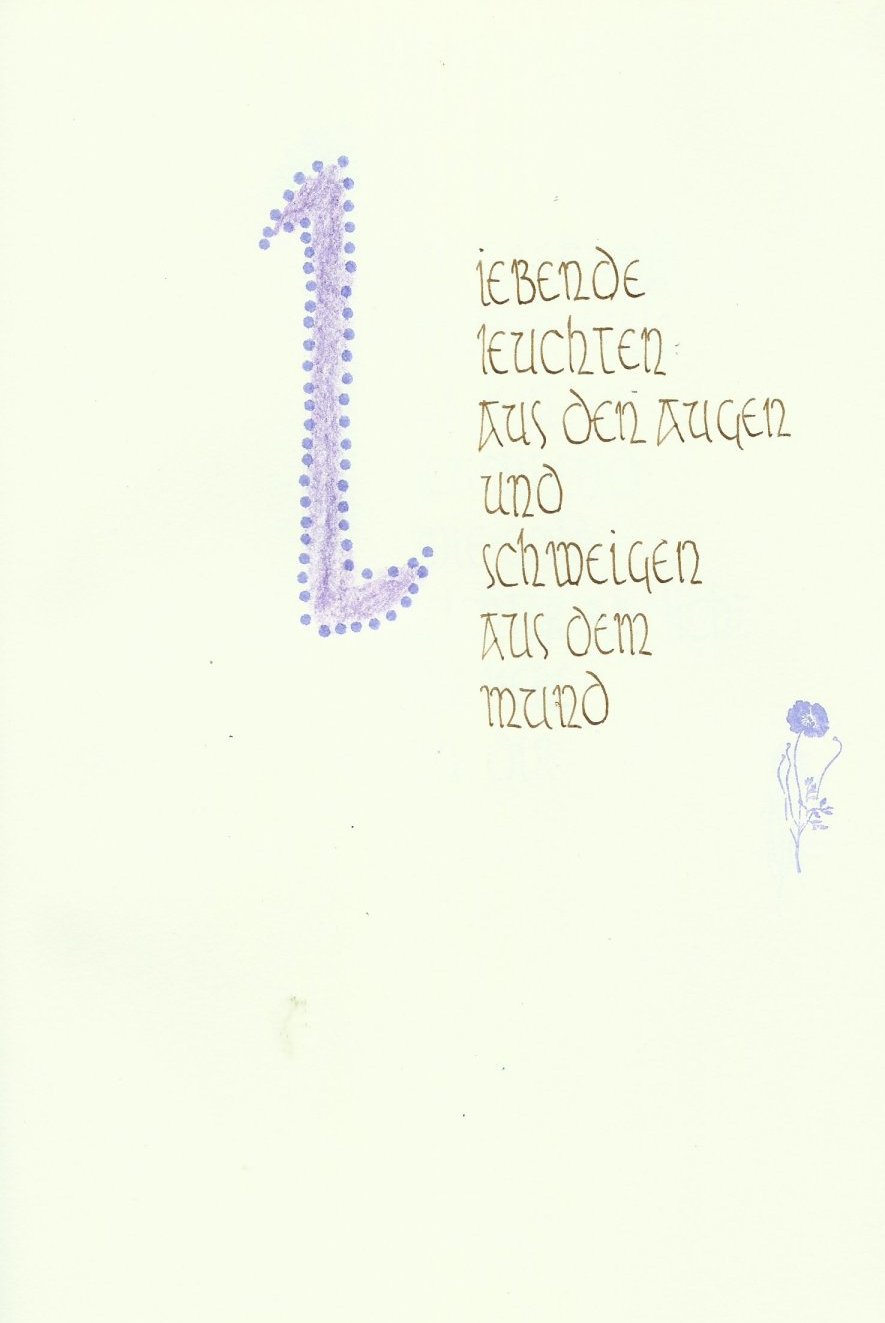 Liebende
leuchten
aus den Augen
und
schweigen
aus dem
Mund